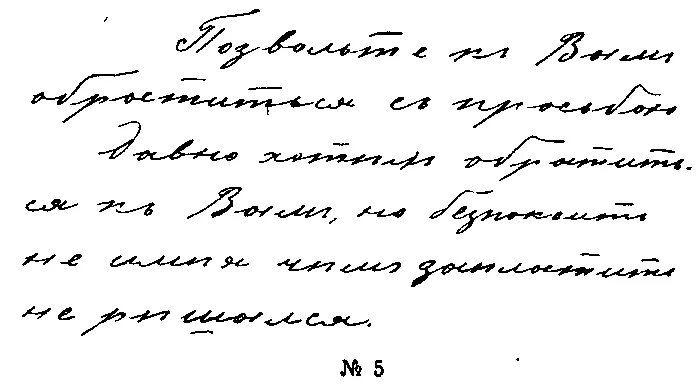 Позвольте къ Вамъ
обратиться съ просьбою
Давно хотѣлъ обратить-
ся къ Вамъ, но безпокоить
не имѣя чѣмъ заплатить
не рѣшался.
№ 5